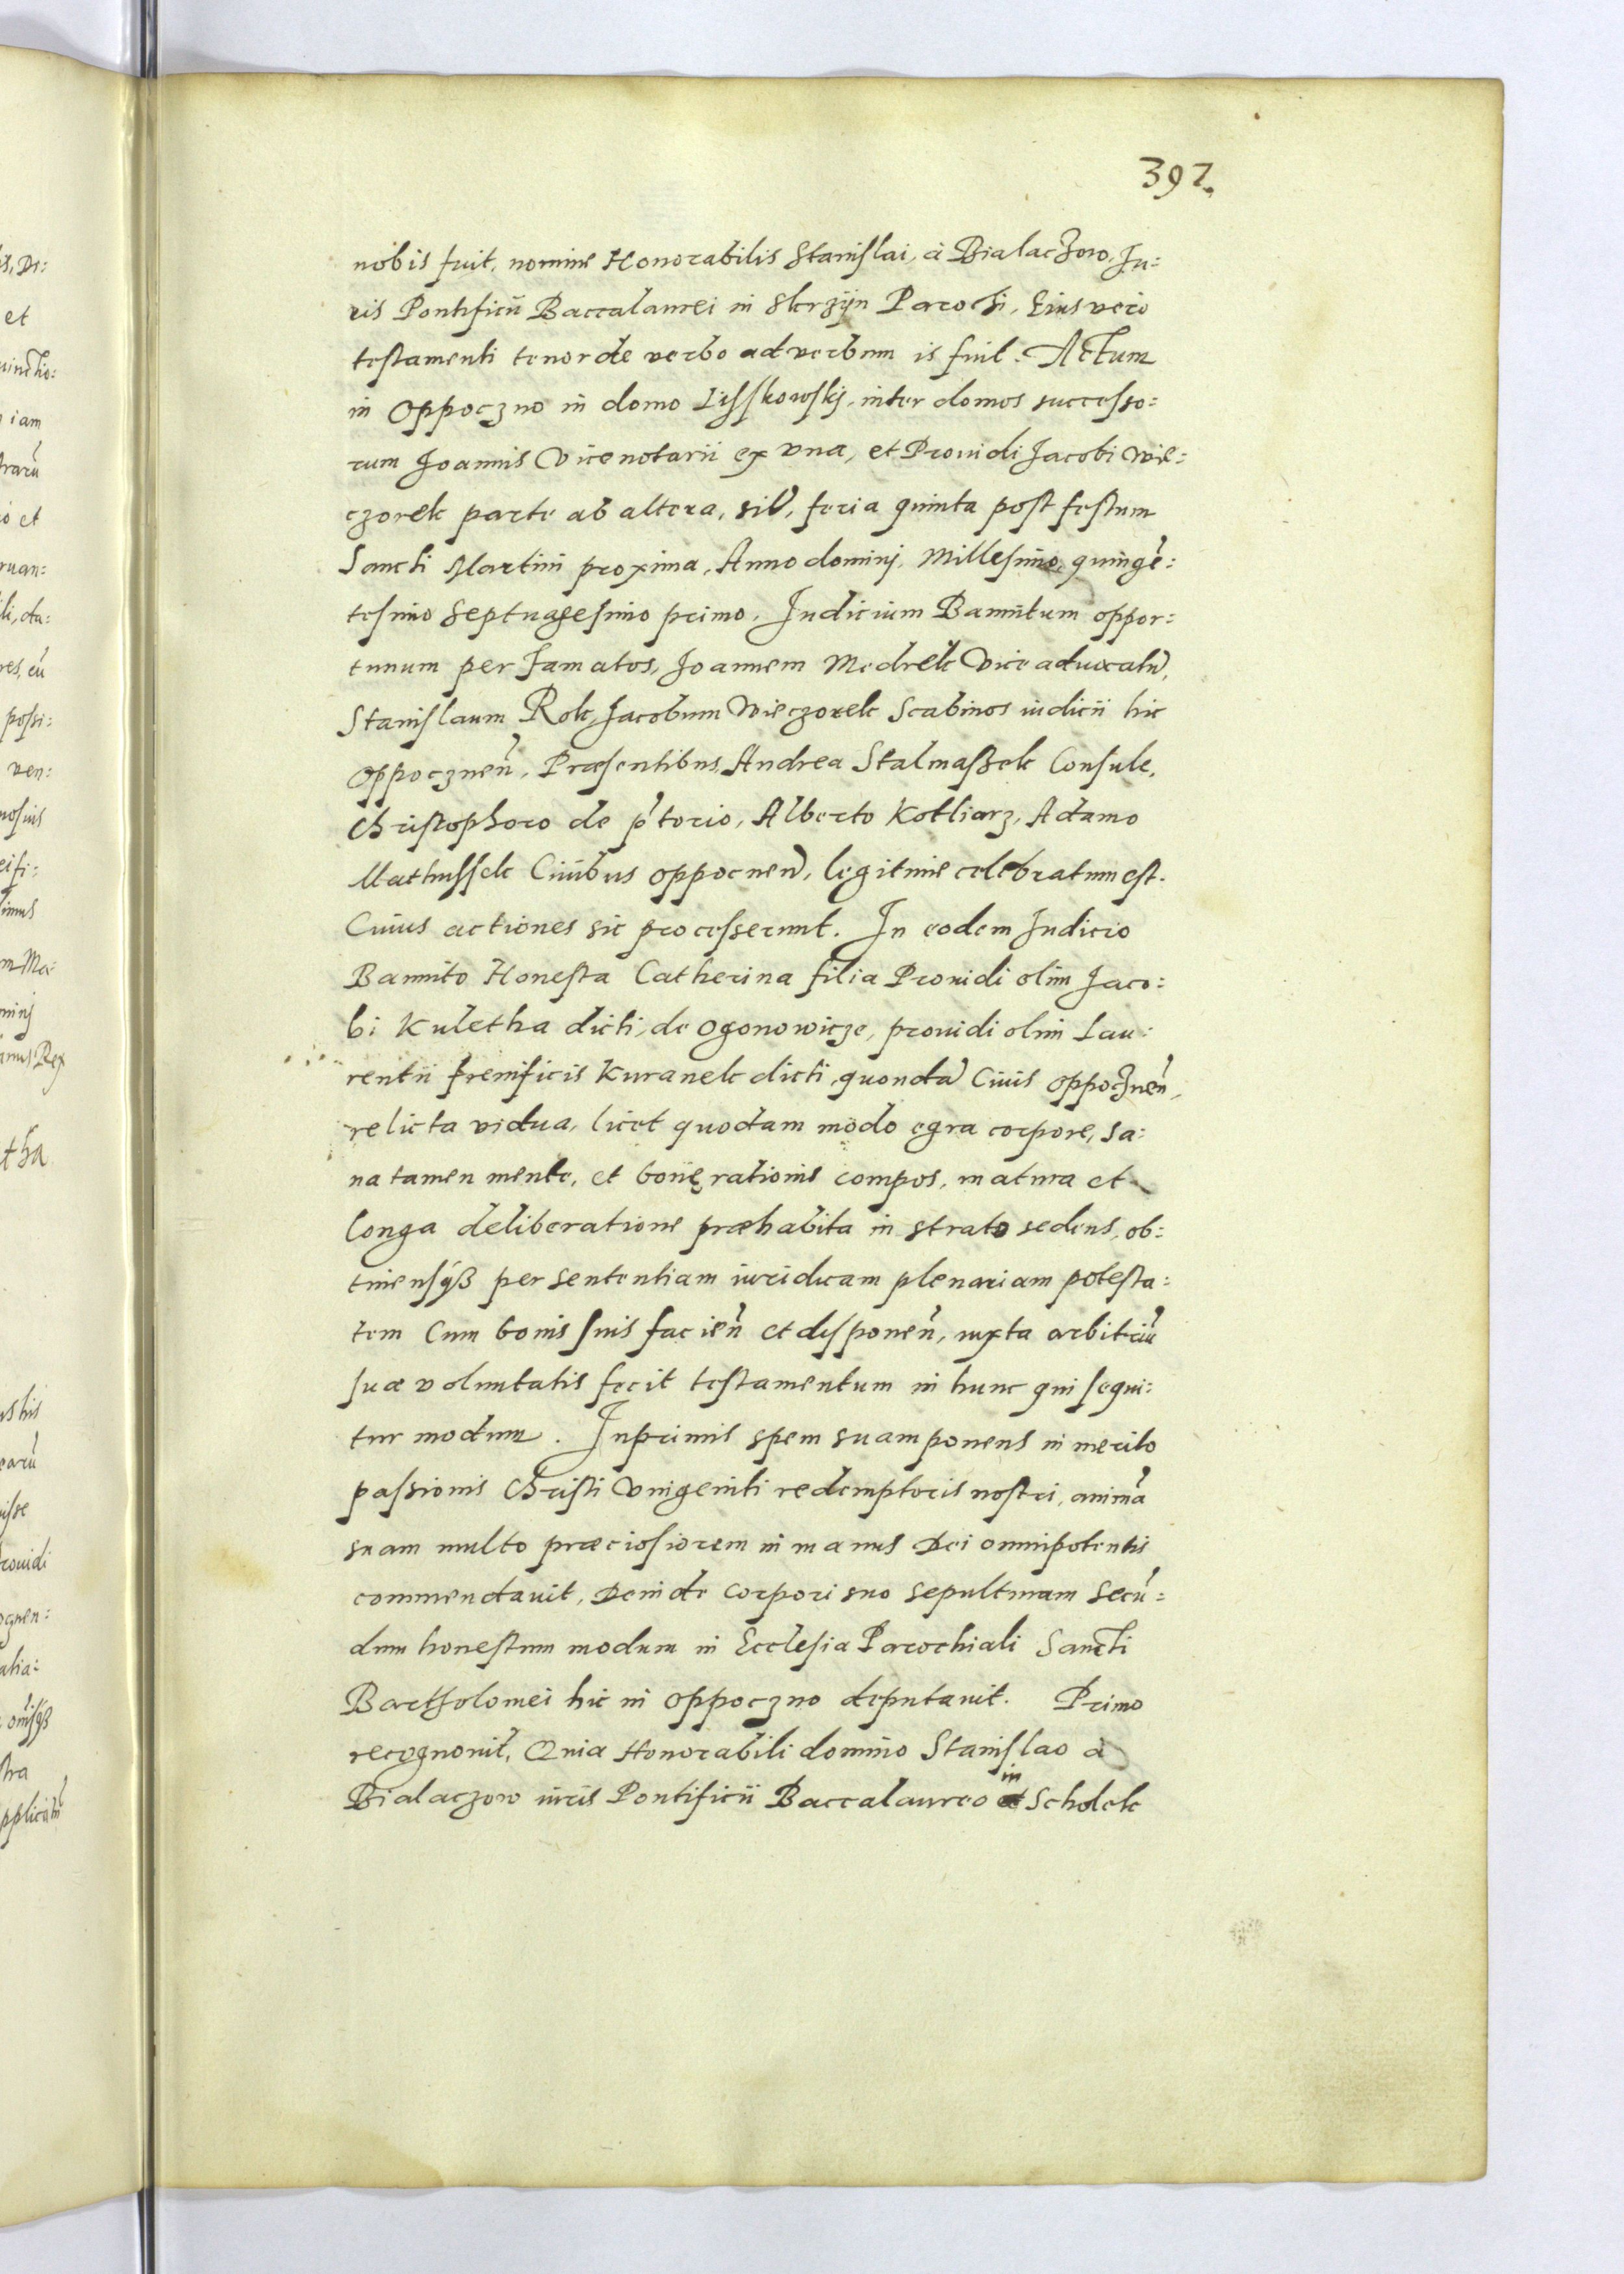 397.
nobis fuit, nomine Honorabilis Stanislai, à Bialaczow, Ju:
ris Pontificii Baccalaurei in Skrzÿn Parochi, Eius vero
testamenti tenor de verbo ad verbum is fuit. Actum
in Oppoczno in domo Lisskowskj, inter domos successo:
rum Joannis Vicenotarii ex vna, et Prouidi Jacobi Wie:
czorek parte ab altera, sit, feria quinta post festum
Sancti Martini proxima, Anno dominj, Millesimo, quingẽ:
tesimo Septuagesimo primo, Judicium Bannitum oppor:
tunum per Famatos, Joannem Medrek Viceaduocatũ,
Stanislaum Rok, Jacobum Wieczorek Scabinos iudicii hic
Oppocznen̄, Præsentibus, Andrea Stalmaszek Consule,
Christophoro de p̃torio, Alberto Kotliarz, Adamo
Mathussek Ciuibus oppocnen̄, legitime celebratum est.
Cuius actiones sic processerunt. In eodem Judicio
Bannito Honesta Catherina filia Prouidi olim Jaco:
bi Kuletha dicti, de Ogonowicze, prouidi olim Lau:
rentii frenificis Kuranek dicti, quondã Ciuis oppocznen̄,
relicta vidua, licet quodam modo egra corpore, sa:
na tamen mente, et bonę rationis compos, matura et
longa deliberatione præhabita in strato sedens, ob:
tinensq́ʒ per sententiam iuridicam plenariam potesta:
tem Cum bonis suis facien̄ et disponen̄, iuxta arbitriũ
suæ voluntatis fecit testamentum in hunc qui sequi:
tur modum. Inprimis spem suam ponens in merito
passionis Christi Vnigeniti redemptoris nostri, animã
suam multo præciosiorem in manus Dei omnipotentis
commendauit, Deinde corpori suo sepulturam secũ:
dum honestum modum in Ecclesia Parochiali Sancti
Bartholomei hic in Oppoczno deputauit. Primo
recognouit, Quia Honorabili domino Stanislao à
Bialaczow iuris Pontificii Baccalaureo in Scholek